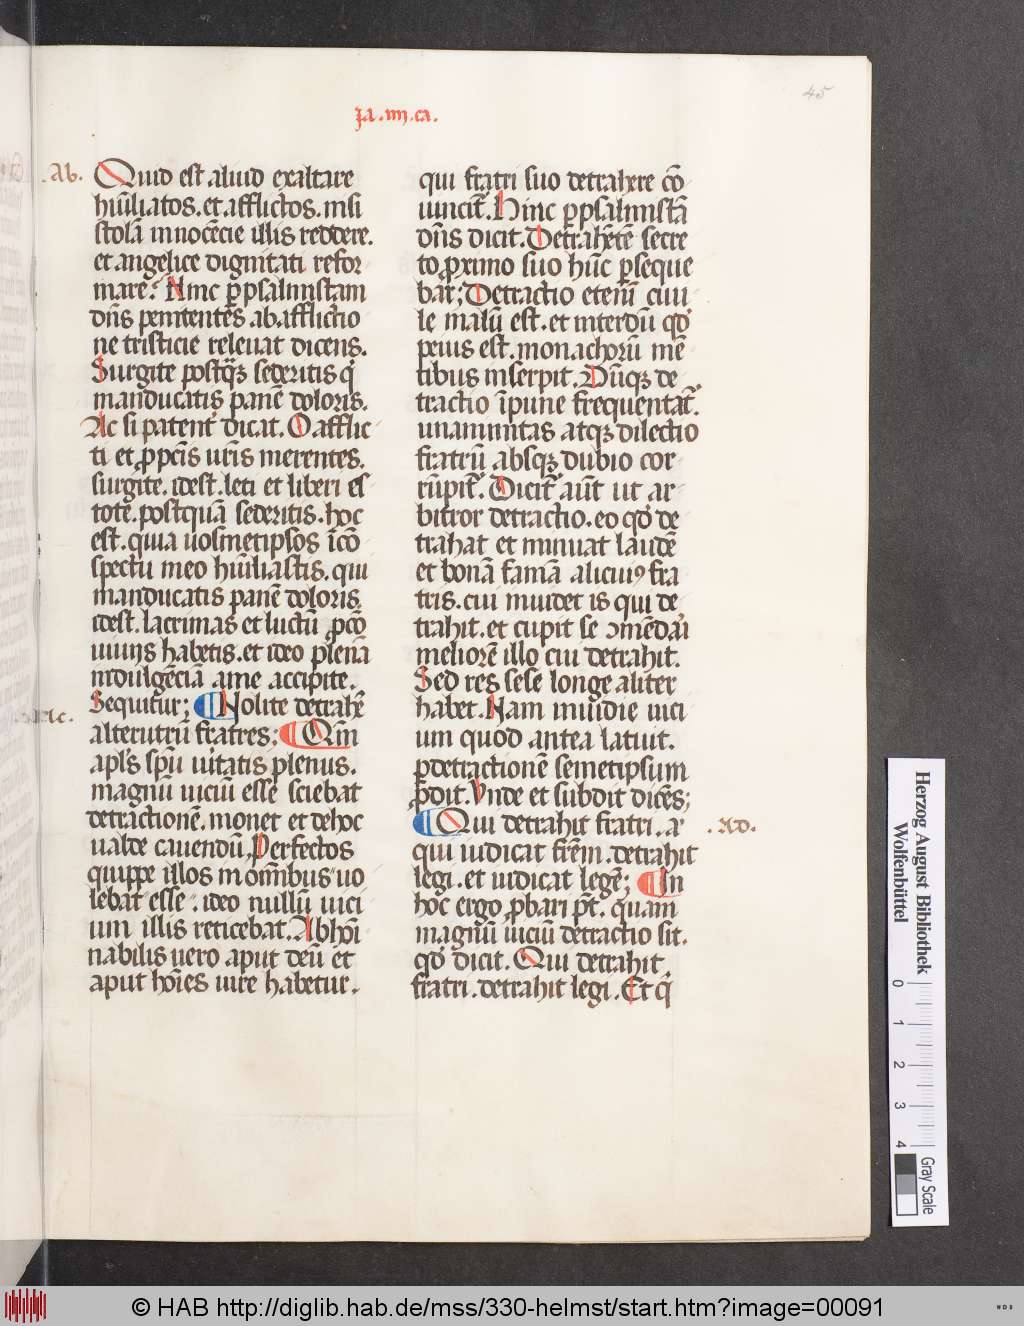 45
Ja . iiij . ca .
. Ab .
Quid est aliud exaltare
hūiliatos . et afflictos . nisi
stolā innocēcie illis reddere .
et angelice dignitati refor
mare . Hinc p̱psalmistam
dn̄s penitentēs ab afflictio
ne tristicie releuat dicens .
Surgite postq̄ꝫ sederitis qi
manducatis panē doloris .
Ac si patent᷑ dicat . O afflic
ti et ꝓpcīs ur̄is merentes .
surgite . idest . leti et liberi es
tote . postquā sederitis . hoc
est . quia uosmetipsos īcō
spectu meo hūiliastis . qui
manducatis panē doloris .
idest . lacrimas et luctū ꝓcō
uiuijs habetis . et ideo plenā
indulgēciā a me accipite .
Sequitur ; Nolite detrahē
alterutrū fratres ; Qm̄
apl̄s sp̄u u͛itatis plenus .
magnū uiciū esse sciebat
detractionē . monet et dehoc
ualde cauendū . Perfectos
quippe illos in om̄ibus uo
lebat esse . ideo nullū uici
um illis reticebat . Abhoi
nabilis uero aput deū et
aput hoi͞es uire habetur .
qui fratri suo detrahere cō
uincit᷑ . Hinc p̱psalmistā
dn̄s dicit . Detrahētē secre
to ꝓximo suo hūc p̱seque
bar ; Detractio etenī cui
le malū est . et interdū qd̓
peius est . monachorū mē
tibus inserpit . Dūqꝫ de
tractio īpune frequentat᷑ .
unanimitas atqꝫ dilectio
fratrū absqꝫ dubio cor
rūpit᷑ . Dicit᷑ aūt ut ar
bitror detractio . eo qd̓ de
trahat et minuat laudē
et bonā famā alicuiꝰ fra
tris . cui inuidet is qui de
trahit . et cupit se ꝯmēdari
meliorē illo cui detrahit .
Sed res sese longe aliter
habet . Nam inuidie uici
um quod antea latuit .
p̱detractionē semetipsum
ꝓdit . Vnde et subdit dicēs ;
Qui detrahit fratri . a
. Ad .
qui iudicat frēm . detrahit
legi . et iudicat legē ; In
hoc ergo ꝓbari pt̄ . quam
magnū uiciū detractio sit .
qd̓ dicit . Qui detrahit
fratri . detrahit legi . Et qi
Herzog August Bibliothek
Wolfenbüttel
0 1 2 3 4
Gray Scale
© HAB http://diglib.hab.de/mss/330-helmst/start.htm?image=00091